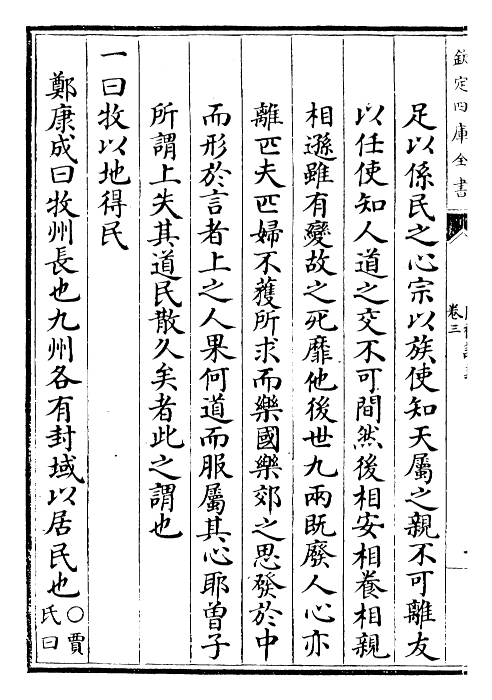 欽定四庫全書
卷三
足以係民之心宗以族使知天屬之親不可離友
以任使知人道之交不可間然後相安相養相親
相遜雖有變故之死靡他後世九兩既廢人心亦
離匹夫匹婦不獲所求而樂國樂郊之思發於中
而形於言者上之人果何道而服屬其心耶曾子
所謂上失其道民散久矣者此之謂也
一曰牧以地得民
鄭康成曰牧州長也九州各有封域以居民也○賈
氏曰